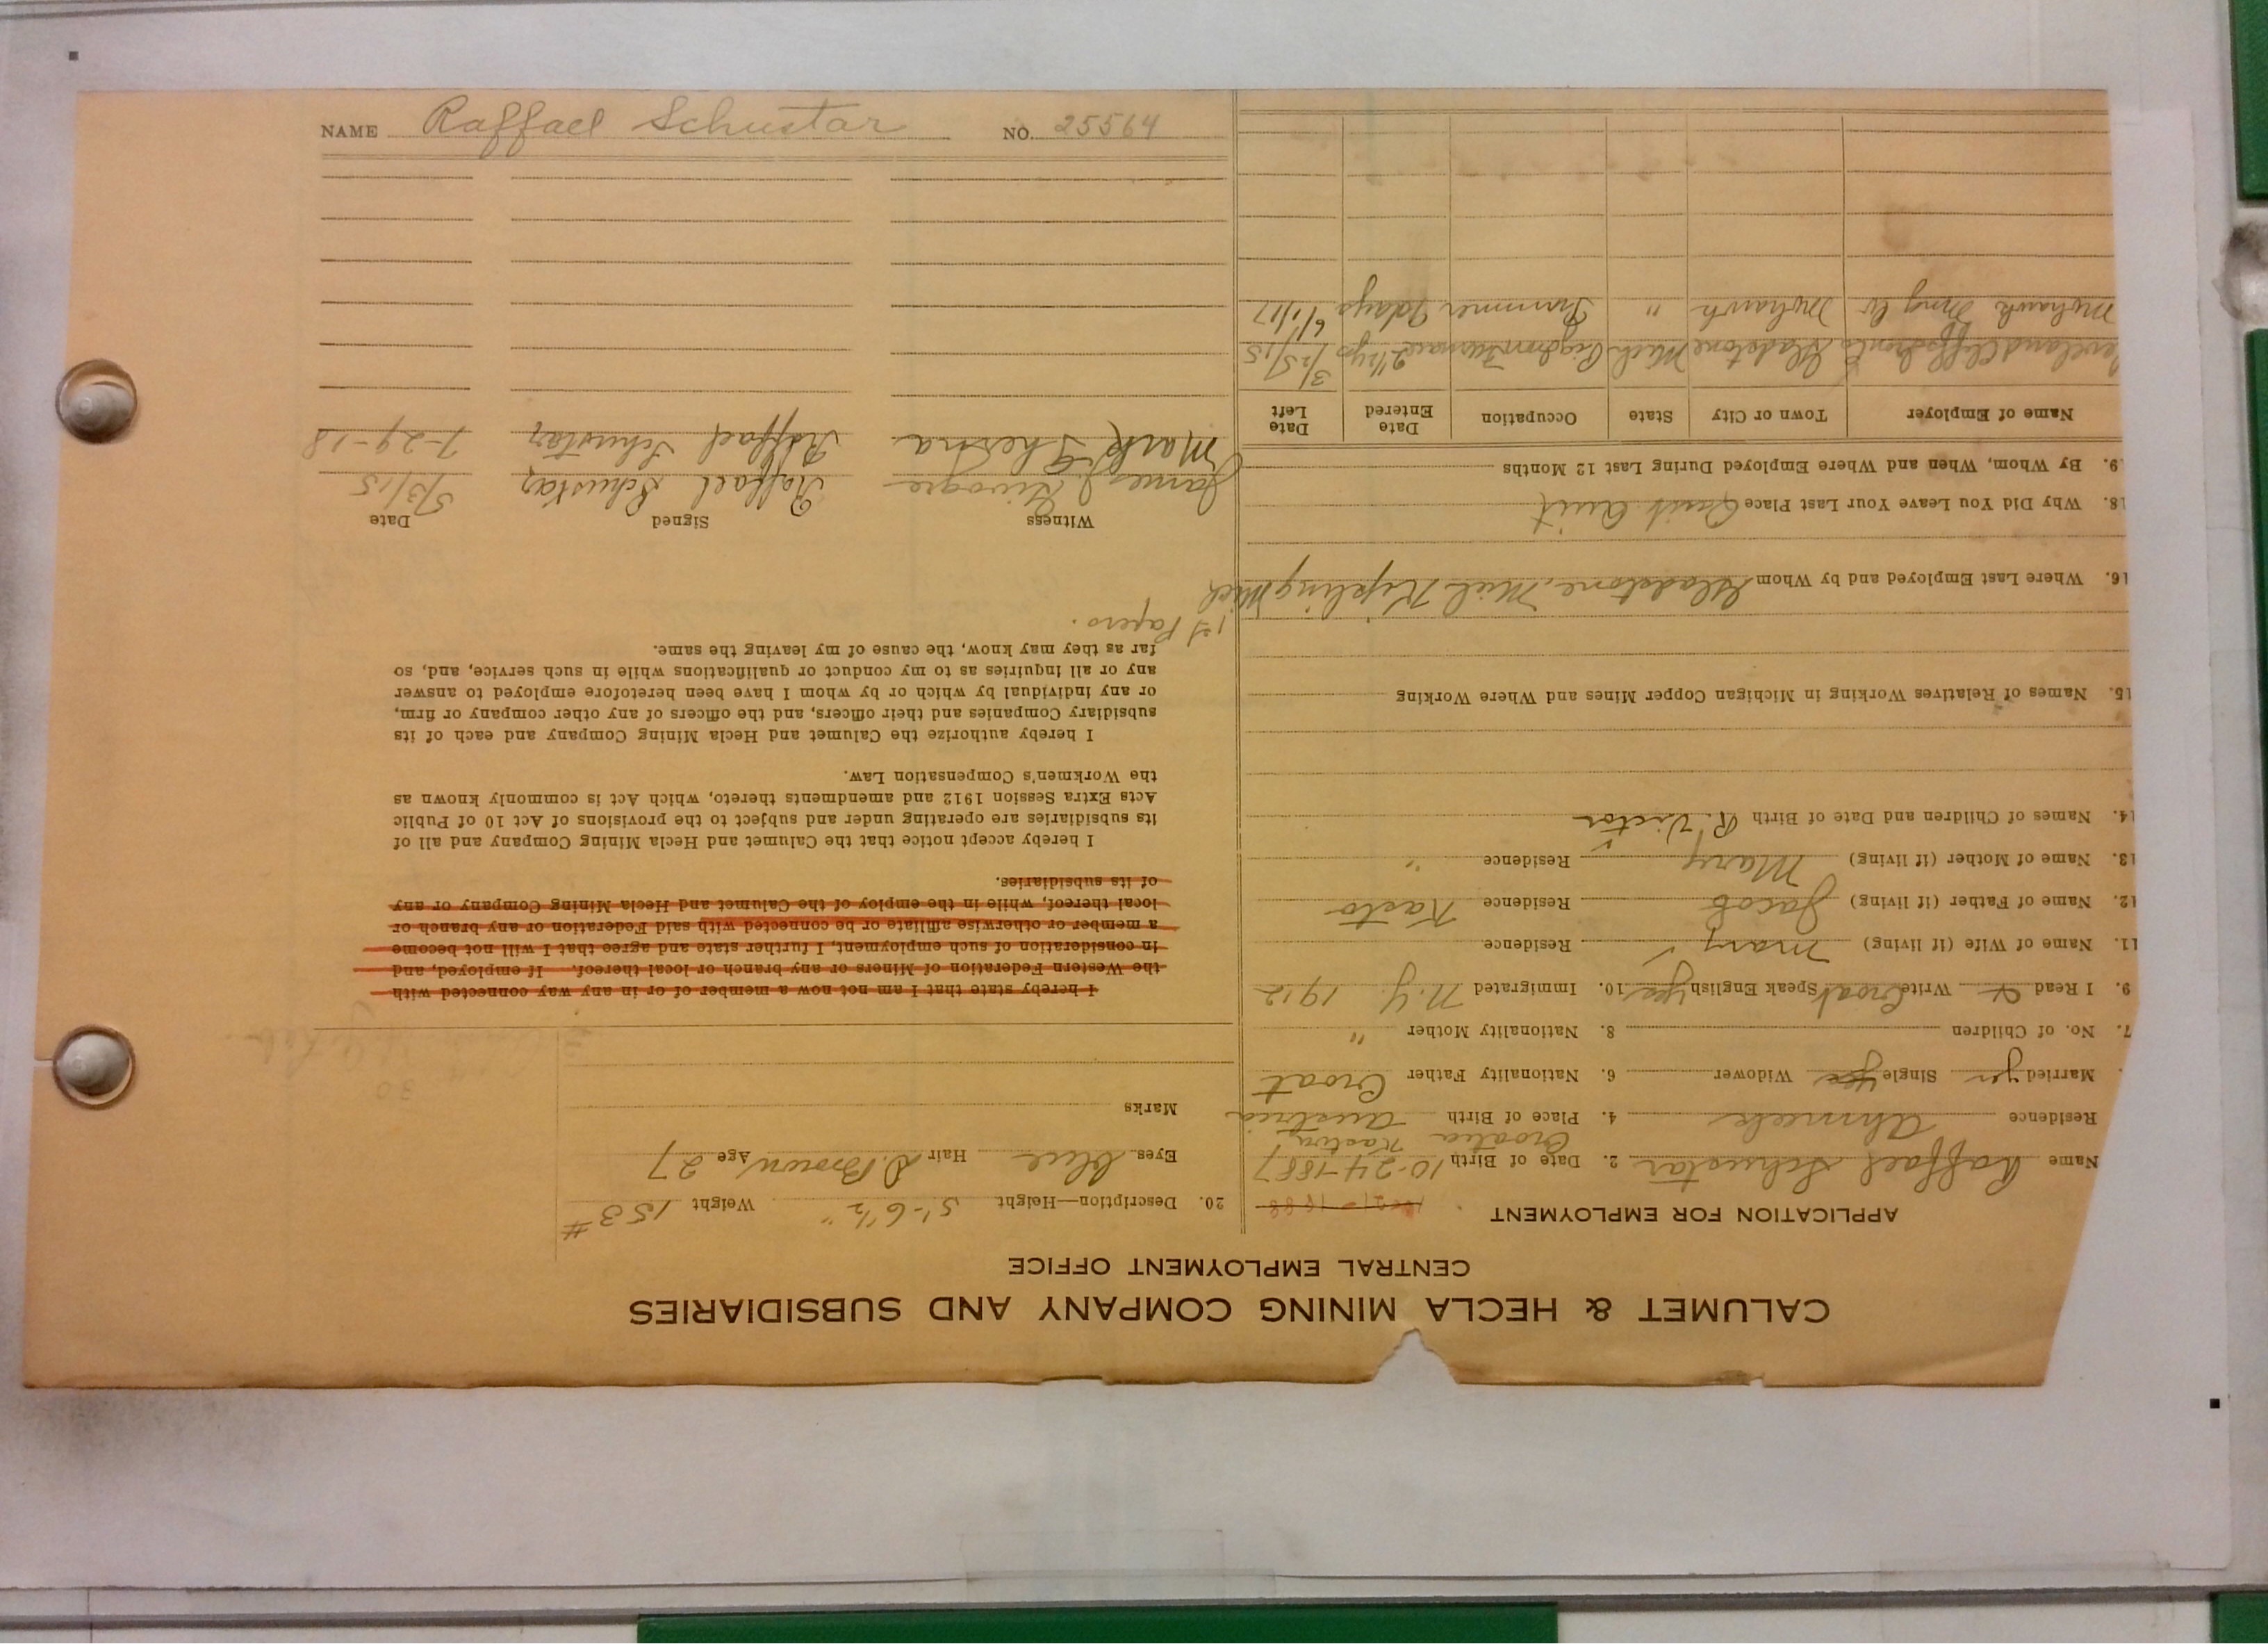 CALUMET & HECLA MINING COMPANY AND SUBSIDIARIES
CENTRAL EMPLOYMENT OFFICE
APPLICATION FOR EMPLOYMENT
Name Raffael Schustar 2. Date of Birth 10-24-1887
Croatia
Residence Ahmeek 4. Place of Birth Austria
Married yes Single yes Widower 6. Nationality Father Croat
7. No. of Children 8. Nationality Mother "
9. I Read Write Croat Speak English yes 10. Immigrated N.Y. 1912
11. Name of Wife (if living) Mary Residence
12. Name of Father (if living) Jacob Residence Kasto
13. Name of Mother (if living) Mary Residence "
14. Names of Children and Date of Birth R. Victor
15. Names of Relatives Working in Michigan Copper Mines and Where Working
16. Where Last Employed and by Whom Gladstone, Mich Kipling Mich
18. Why Did You Leave Your Last Place Quit
19. By Whom, When and Where Employed During Last 12 Months
Name of Employer Town or City State Occupation Date Entered Date Left
Gladstone Mich 2 1/2 yrs 3/25/15
Mohawk Mng Co Mohawk " 7 days 6/1/17
20. Description—Height 5'-6 1/2" Weight 153 #
Eyes Blue Hair D. Brown Age 27
Marks
I hereby state that I am not now a member of or in any way connected with
the Western Federation of Miners or any branch or local thereof. If employed, and
in consideration of such employment, I further state and agree that I will not become
a member or otherwise affiliate or be connected with said Federation or any branch or
local thereof, while in the employ of the Calumet and Hecla Mining Company or any
of its subsidiaries.
I hereby accept notice that the Calumet and Hecla Mining Company and all of
its subsidiaries are operating under and subject to the provisions of Act 10 of Public
Acts Extra Session 1912 and amendments thereto, which Act is commonly known as
the Workmen's Compensation Law.
I hereby authorize the Calumet and Hecla Mining Company and each of its
subsidiary Companies and their officers, and the officers of any other company or firm,
or any individual by which or by whom I have been heretofore employed to answer
any or all inquiries as to my conduct or qualifications while in such service, and, so
far as they may know, the cause of my leaving the same.
1st Papers.
Witness Signed Date
James J. Raffael Schustar 5/3/15
Mark Raffael Schustar 7-29-18
NAME Raffael Schustar NO. 25564